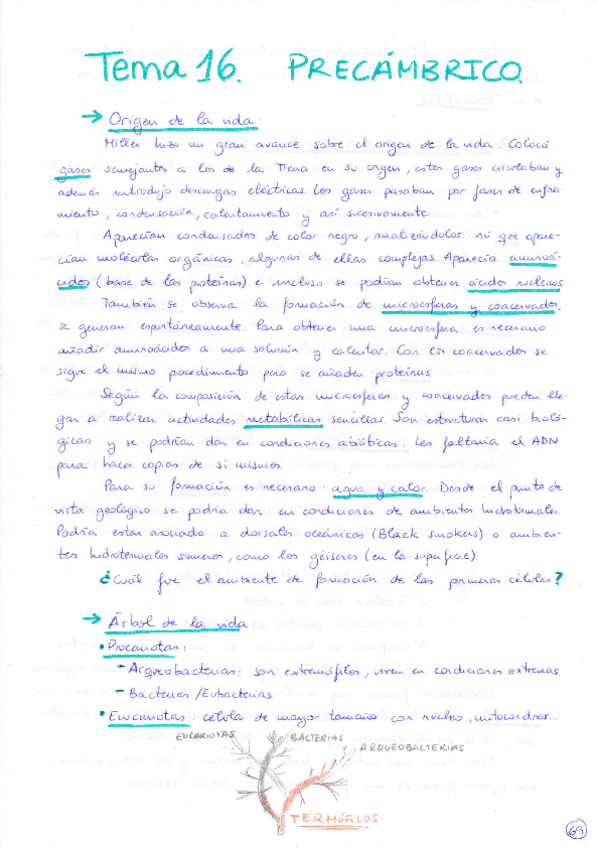 Tema 16. PRECÁMBRICO.
→ Origen de la vida.
Miller hizo un gran avance sobre el origen de la vida. Colocó
gases semejantes a los de la Tierra en su origen, estos gases circulaban y
además introdujo descargas eléctricas. Los gases pasaban por fases de enfria-
miento, condensación, calentamiento y así sucesivamente.
Aparecían condensados de color negro, analizándolos vió que apare-
cían moléculas orgánicas, algunas de ellas complejas. Aparecía aminoá-
cidos (base de las proteínas) e incluso se podían obtener ácidos nucleicos
También se observa la formación de microesferas y coacervados,
se generan espontáneamente. Para obtener una microesfera es necesario
añadir aminoácidos a una solución y calentar. Con los coacervados se
sigue el mismo procedimiento pero se añaden proteínas
Según la composición de estas microesferas y coacervados pueden lle-
gar a realizar actividades metabólicas sencillas. Son estructuras casi bioló-
gicas y se podrían dar en condiciones abióticas. Les faltaría el ADN
para hacer copias de si mismos.
Para su formación es necesario: agua y calor. Desde el punto de
vista geológico se podría dar en condiciones de ambientes hidrotermales.
Podría estar asociado a dorsales oceánicas (Black smokers) o ambien-
tes hidrotermales someros, como los géiseres (en la superficie).
¿Cuál fue el ambiente de formación de las primeras células?
→ Árbol de la vida
• Procariotas:
- Arqueobacterias: son extremófilos, viven en condiciones extremas.
- Bacterias/Eubacterias
• Eucariotas: célula de mayor tamaño con núcleo, mitocondrias...
EUCARIOTAS
BACTERIAS
ARQUEOBACTERIAS
TERMÓFILOS
69